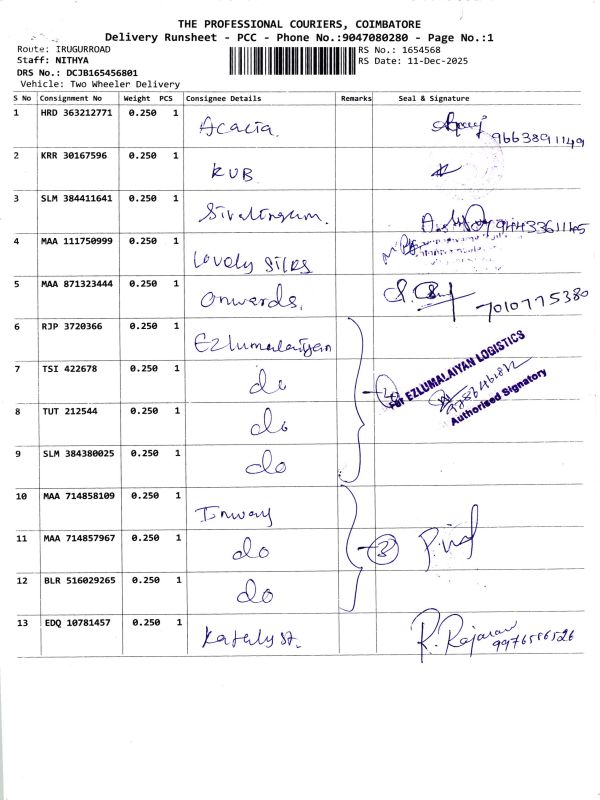 THE PROFESSIONAL COURIERS, COIMBATORE
Delivery Runsheet - PCC - Phone No.:9047080280 - Page No.:1
Route: IRUGURROAD
Staff: NITHYA
DRS No.: DCJB165456801
Vehicle: Two Wheeler Delivery
RS No.: 1654568
RS Date: 11-Dec-2025
S No Consignment No Weight PCS Consignee Details Remarks Seal & Signature
1 HRD 363212771 0.250 1 Acacia. 9663891149
2 KRR 30167596 0.250 1 KVB
3 SLM 384411641 0.250 1 Sivalingam. 9443361145
4 MAA 111750999 0.250 1 Lovely Silks
5 MAA 871323444 0.250 1 Onwards. 7010775380
6 RJP 3720366 0.250 1 Ezlumalaiyan
7 TSI 422678 0.250 1 do
FOR EZLUMALAIYAN LOGISTICS
Authorised Signatory
8 TUT 212544 0.250 1 do
9 SLM 384380025 0.250 1 do
10 MAA 714858109 0.250 1 Inway
11 MAA 714857967 0.250 1 do 3
12 BLR 516029265 0.250 1 do
13 EDQ 10781457 0.250 1 Katalyst. R. Rajaram
9976566526